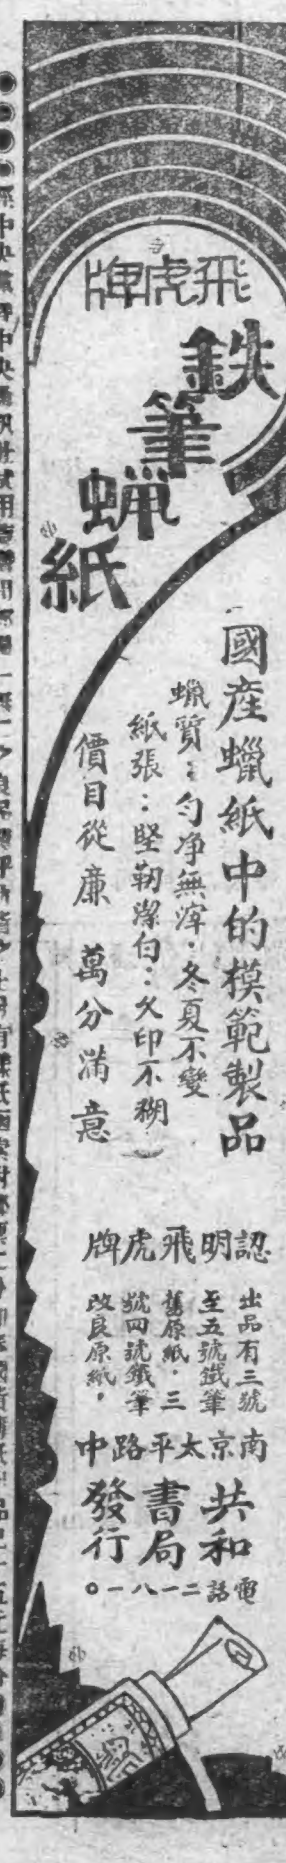 飛虎牌
鉄筆蠟紙
國産蠟紙中的模範製品
蠟質：勻净無滓．冬夏不變
紙張：堅韌潔白：久印不糊
價目從廉 萬分滿意
認明飛虎牌
出品有三號
至五號鐵筆
舊原紙．三
號四號鐵筆
改良原紙．
南京太平路中
共和書局發行
電話二一八一〇